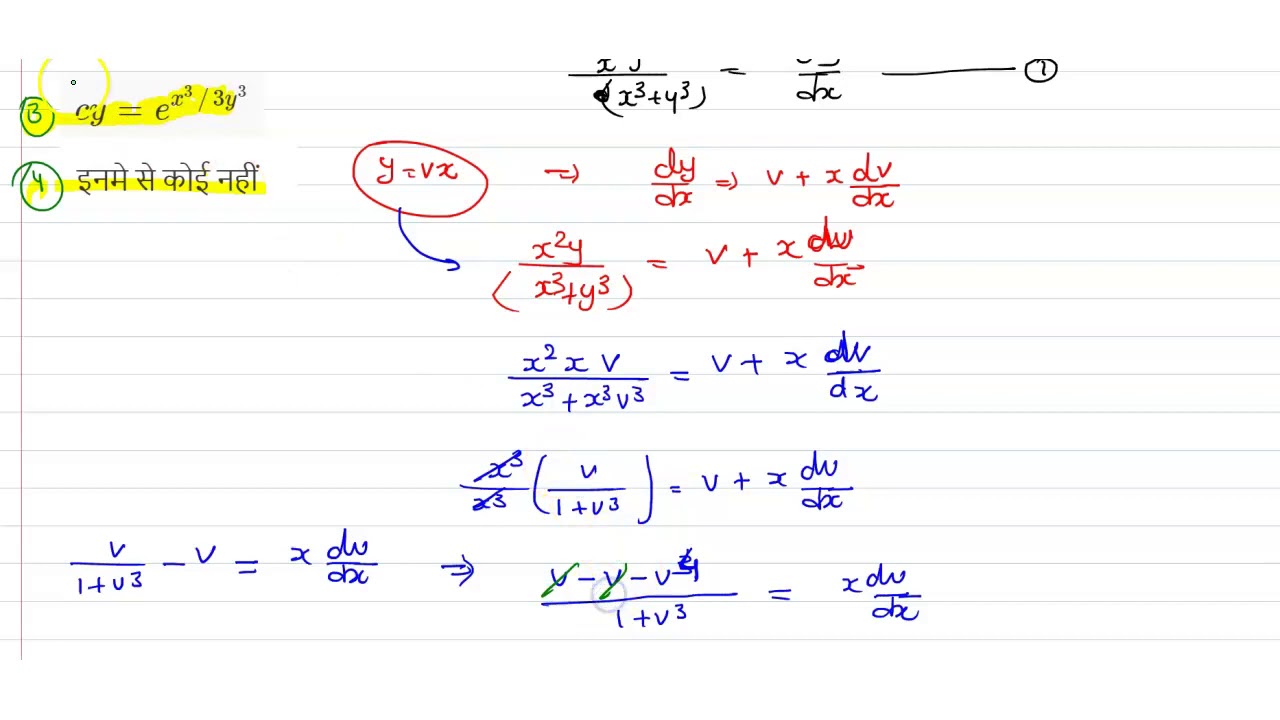 (x³+y³) = dx ——— ①
③ cy = e^{x³/3y³}
④ इनमे से कोई नहीं
y=vx ⇒ dy/dx ⇒ v + x dv/dx
x²y/(x³+y³) = v + x dv/dx
x² x v/(x³+x³v³) = v + x dv/dx
x³/x³ (v/(1+v³)) = v + x dv/dx
v/(1+v³) - v = x dv/dx ⇒ (v - v - v⁴)/(1+v³) = x dv/dx